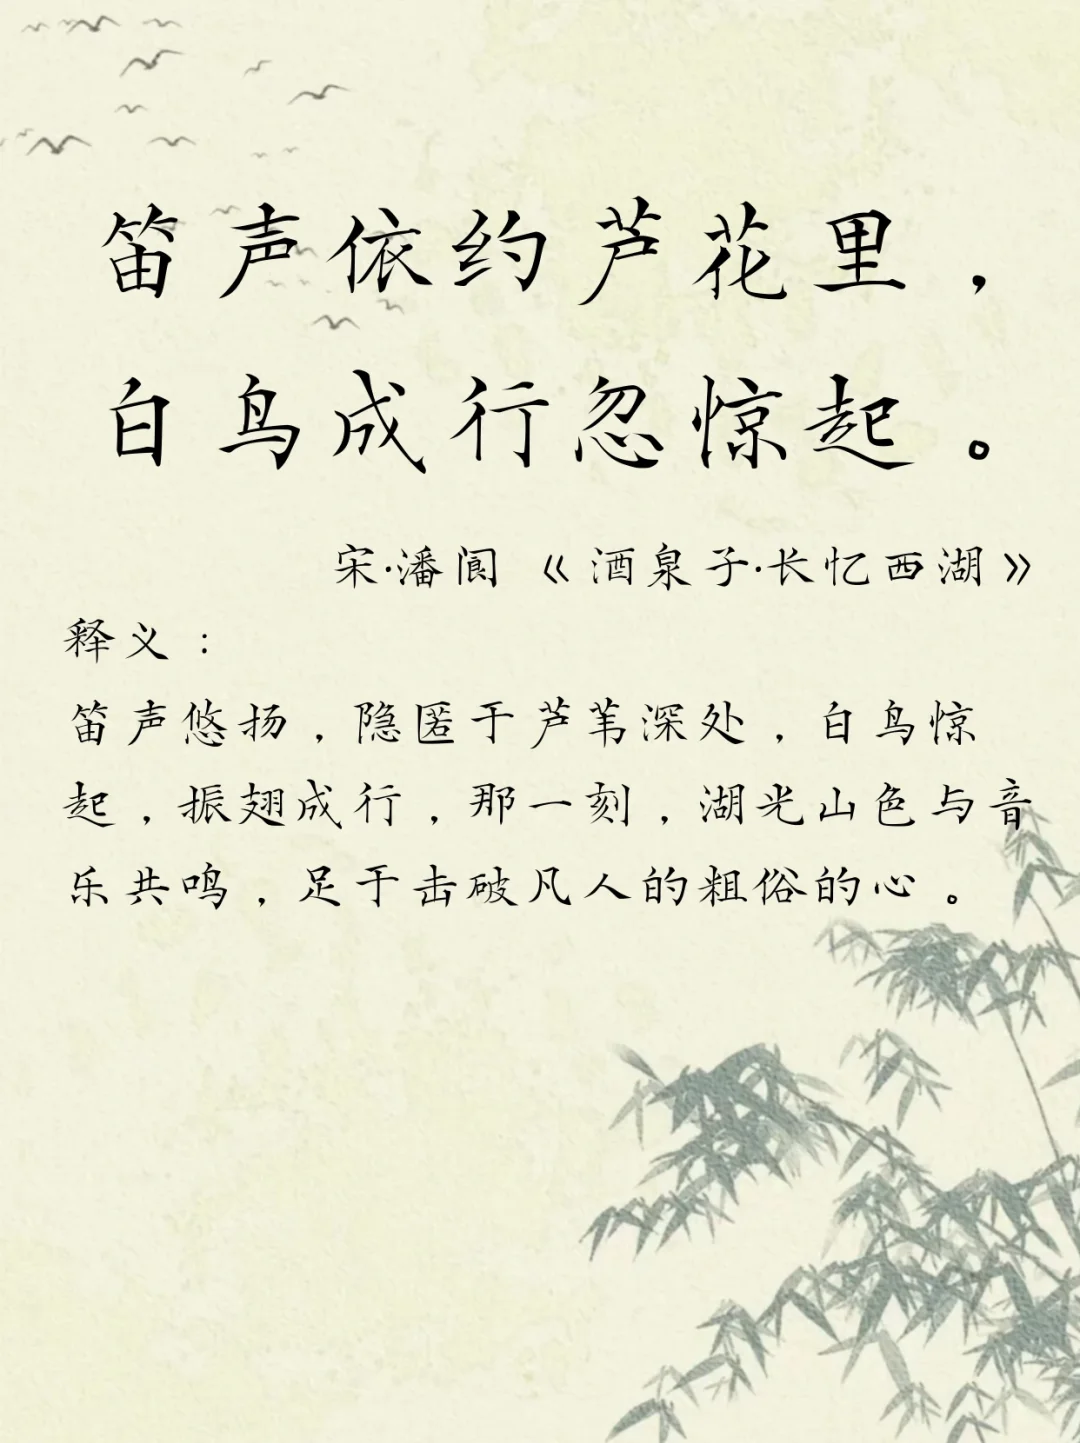 笛声依约芦花里，
白鸟成行忽惊起。
宋·潘阆《酒泉子·长忆西湖》
释义：
笛声悠扬，隐匿于芦苇深处，白鸟惊
起，振翅成行，那一刻，湖光山色与音
乐共鸣，足于击破凡人的粗俗的心。